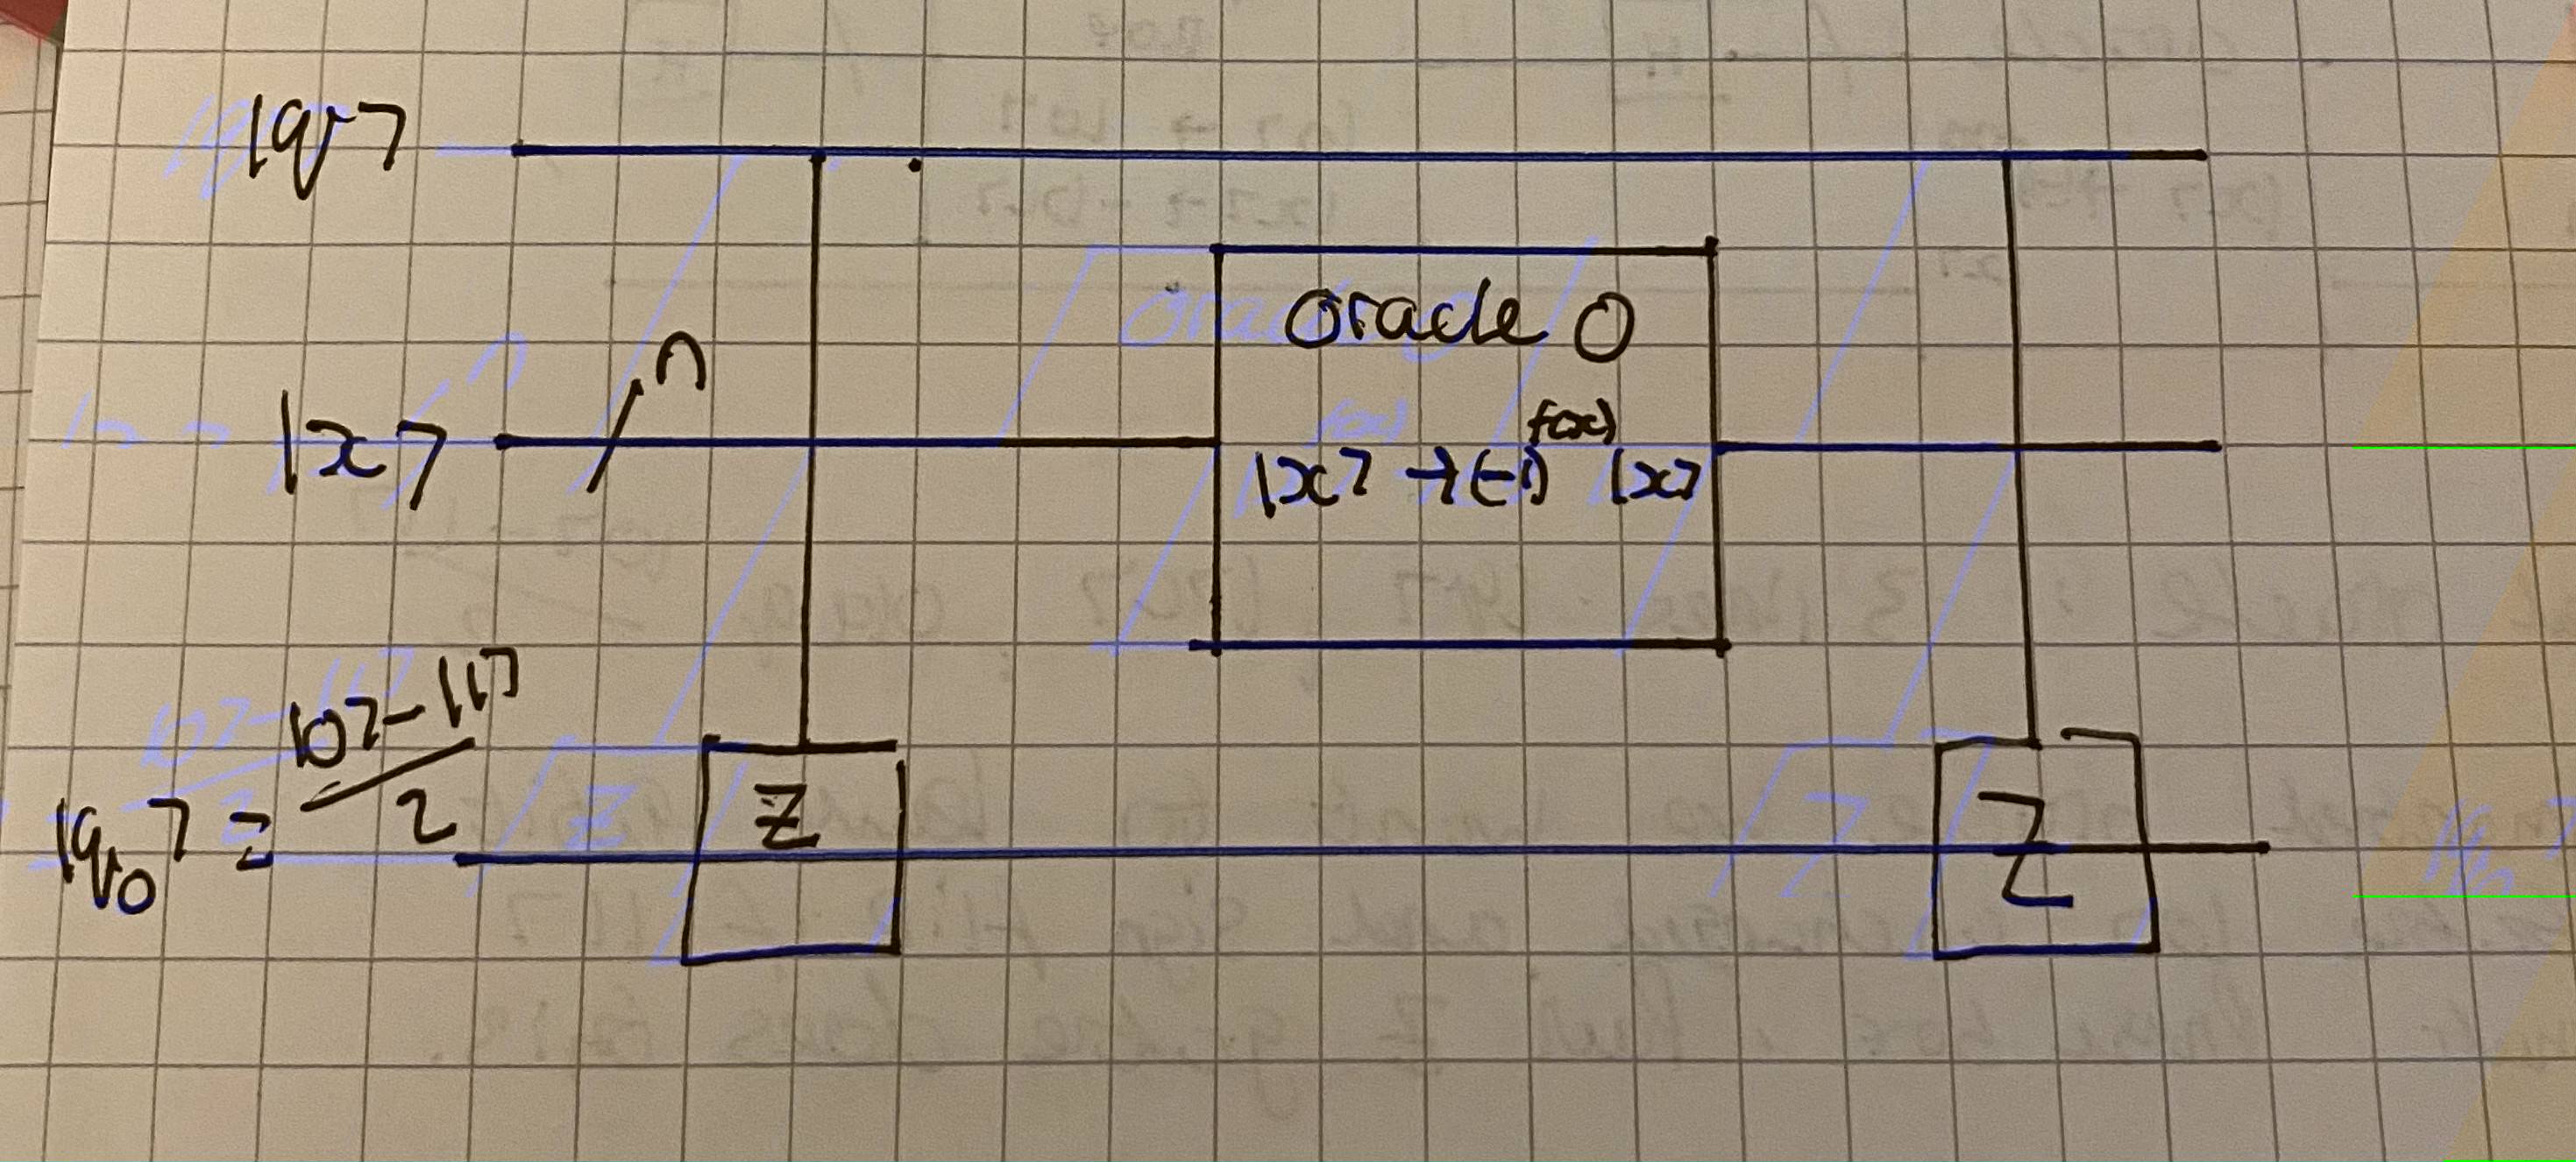 |q>
|x> n
Oracle O
|x> → (-1)^f(x) |x>
|q₀> = |0>-|1> / 2
Z
Z